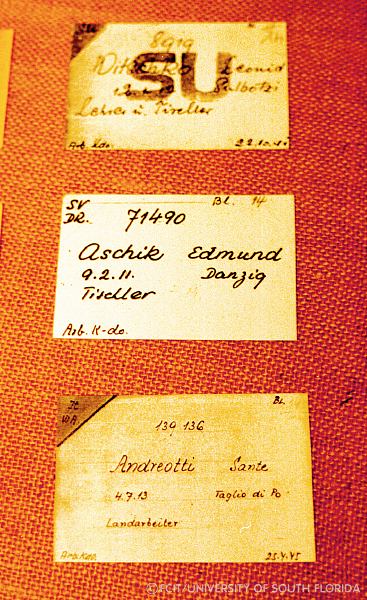 8919
SU
Witenko Leonid
Lehrer u. Tischler
Arb. kdo. 22.10.41
SV Bl. 14
DR. 71490
Aschik Edmund
9.2.11. Danzig
Tischler
Arb. K-do.
JC Bl.
WA.
139 136
Andreotti Sante
4.7.13 Taglio di Po
Landarbeiter
Arb. Kdo. 25.4.45
© FCIT/UNIVERSITY OF SOUTH FLORIDA